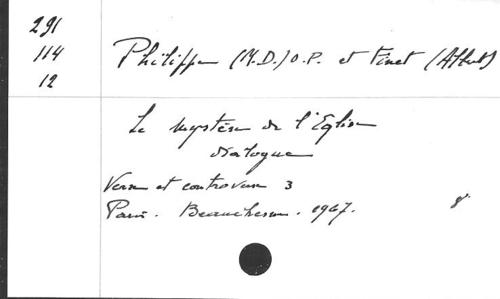 291
114
12
Philippe (M.D.) O.P. et Finet (Albert)
Le mystère de l'Eglise
dialogue
Verse et controverse 3
Paris. Beauchesne. 1967.
8°